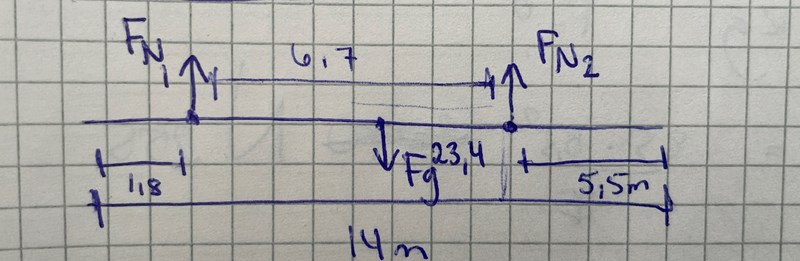 FN1 6,7 FN2
Fg 23,4
1,8 5,5m
14 m